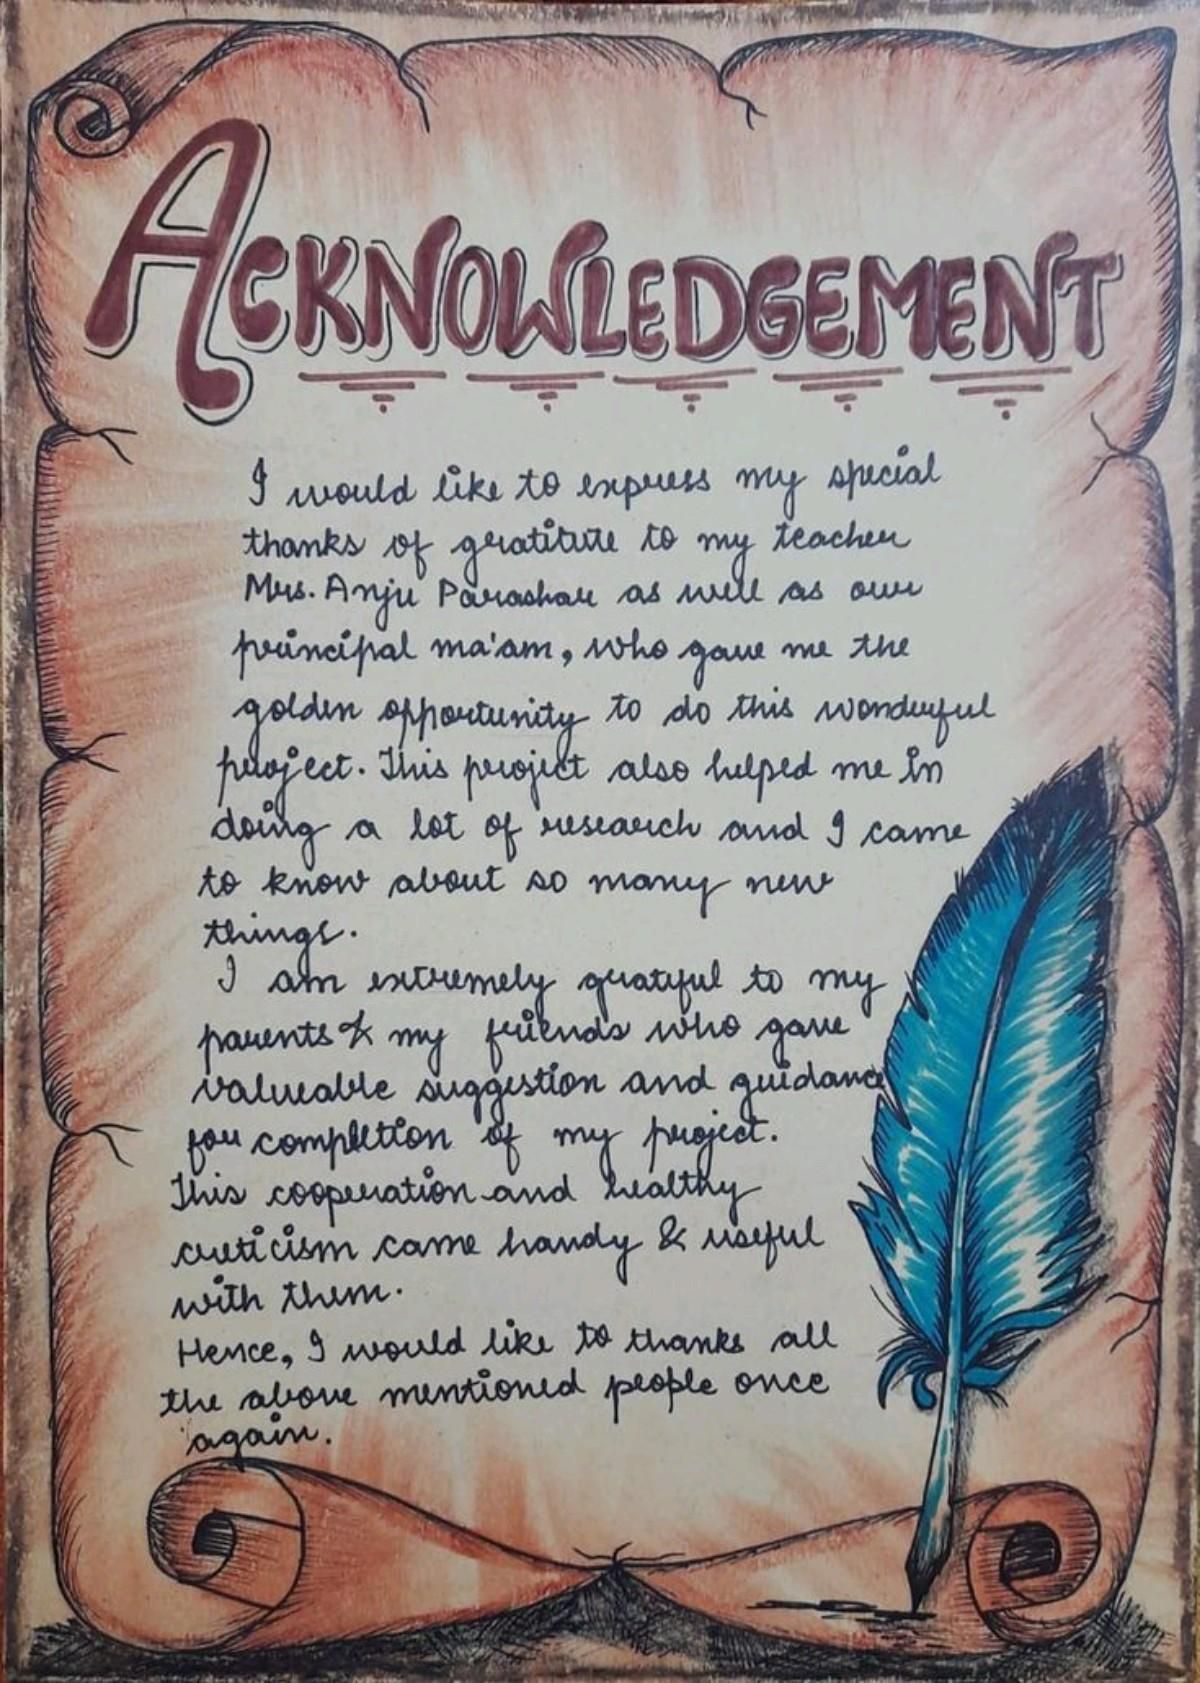 ACKNOWLEDGEMENT
I would like to express my special
thanks of gratitute to my teacher
Mrs. Anju Parashar as well as our
principal ma'am, who gave me the
golden opportunity to do this wonderful
project. This project also helped me in
doing a lot of research and I came
to know about so many new
things.
I am extremely grateful to my
parents & my friends who gave
valueable suggestion and guidance
for completion of my project.
This cooperation and healthy
criticism came handy & useful
with them.
Hence, I would like to thanks all
the above mentioned people once
again.